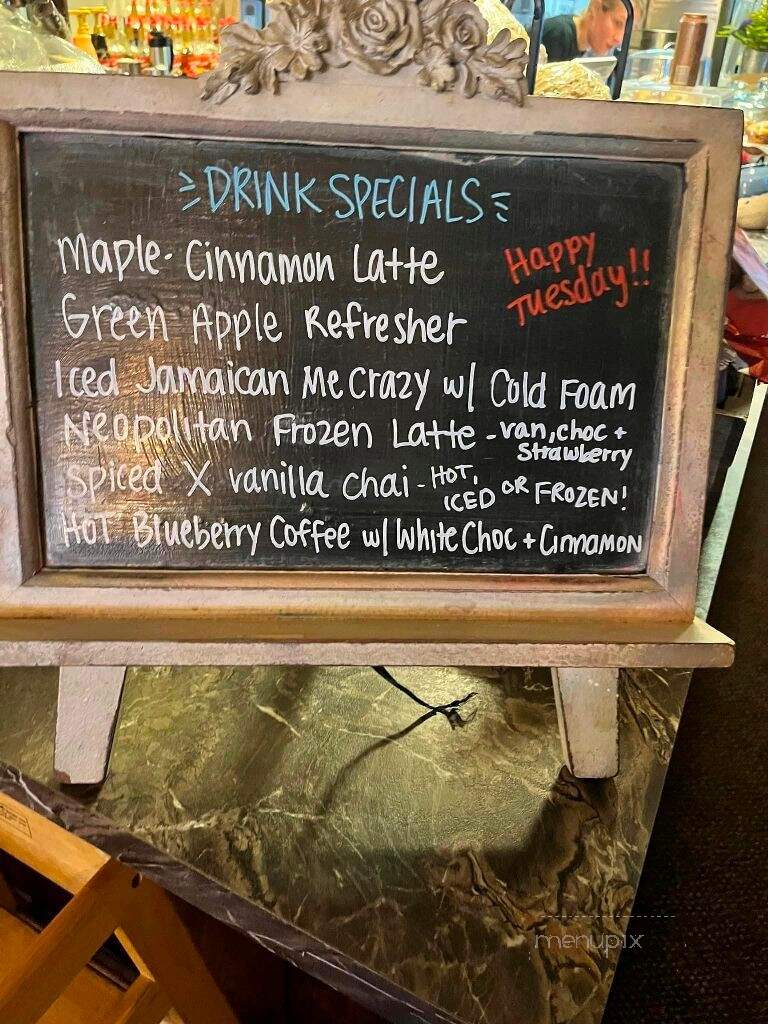 DRINK SPECIALS
Happy
Tuesday!!
Maple-Cinnamon Latte
Green Apple Refresher
Iced Jamaican Me Crazy w/ Cold Foam
Neopolitan Frozen Latte - van, choc +
Strawberry
Spiced X vanilla chai - HOT,
ICED OR FROZEN!
HOT Blueberry Coffee w/ White Choc + Cinnamon
menupix